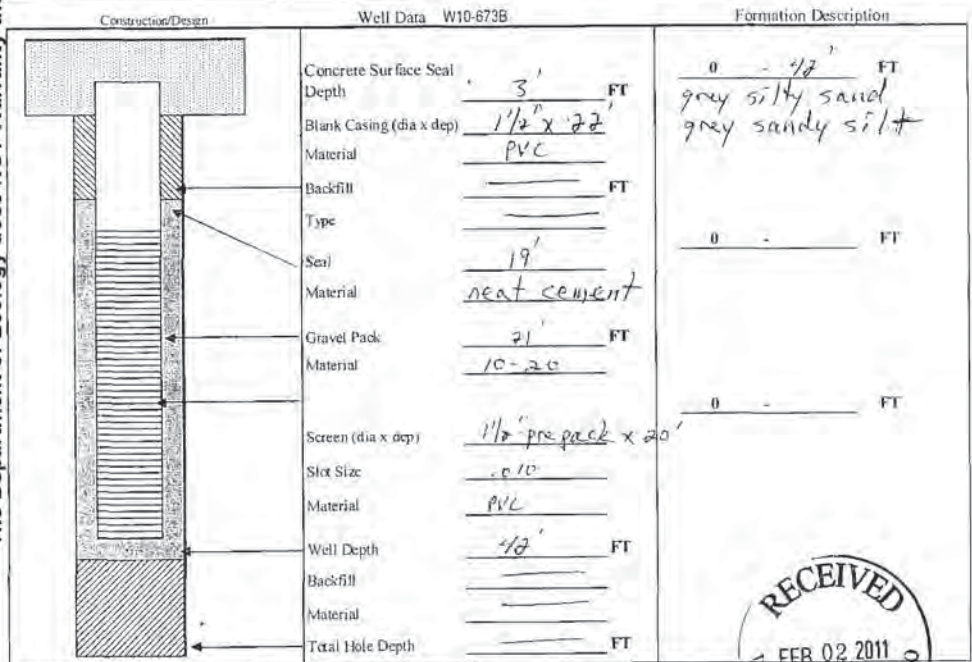 Construction/Design
Well Data W10-673B
Formation Description
Concrete Surface Seal
Depth 3' FT
Blank Casing (dia x dep) 1 1/2" x 22'
Material PVC
Backfill — FT
Type —
Seal 19'
Material neat cement
Gravel Pack 21' FT
Material 10-20
Screen (dia x dep) 1 1/2" prepack x 20'
Slot Size .010
Material PVC
Well Depth 42' FT
Backfill —
Material —
Total Hole Depth — FT
0 - 42' FT
grey silty sand
grey sandy silt
0 - FT
0 - FT
RECEIVED
FEB 02 2011